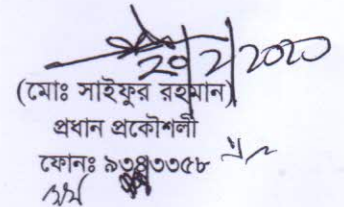 20/2/2020
(মোঃ সাইফুর রহমান)
প্রধান প্রকৌশলী
ফোনঃ ৯৩৪৩৩৫৮